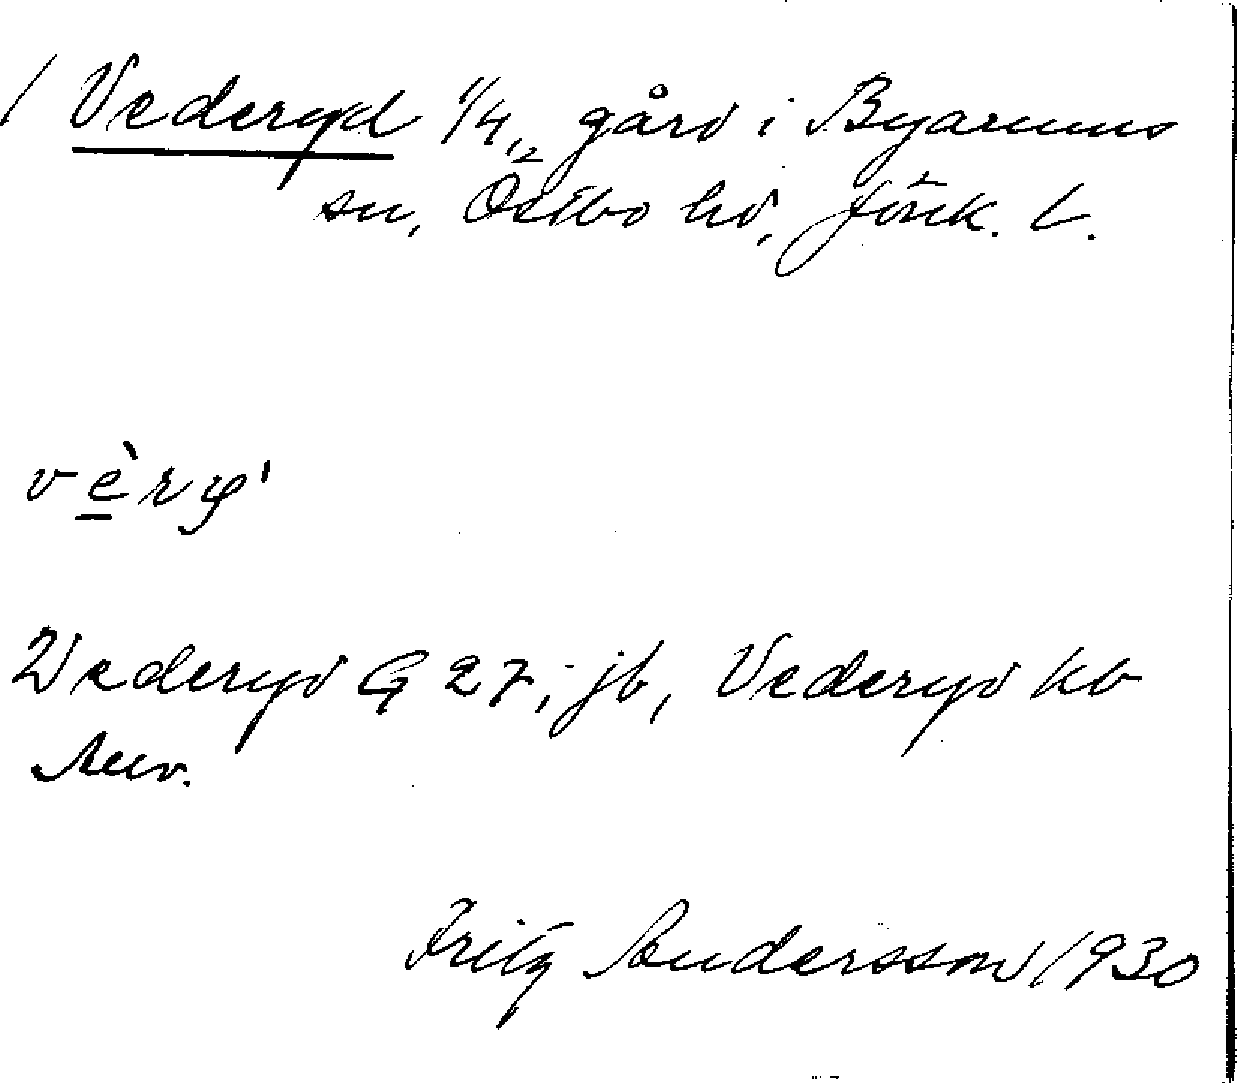 / Vederyd 1/4, gård i Byarums
sn, Östbo hd, Jönk. L.
vèry'
Vederyd G 27, jb, Vederyd kb
Fritz Andersson 1930